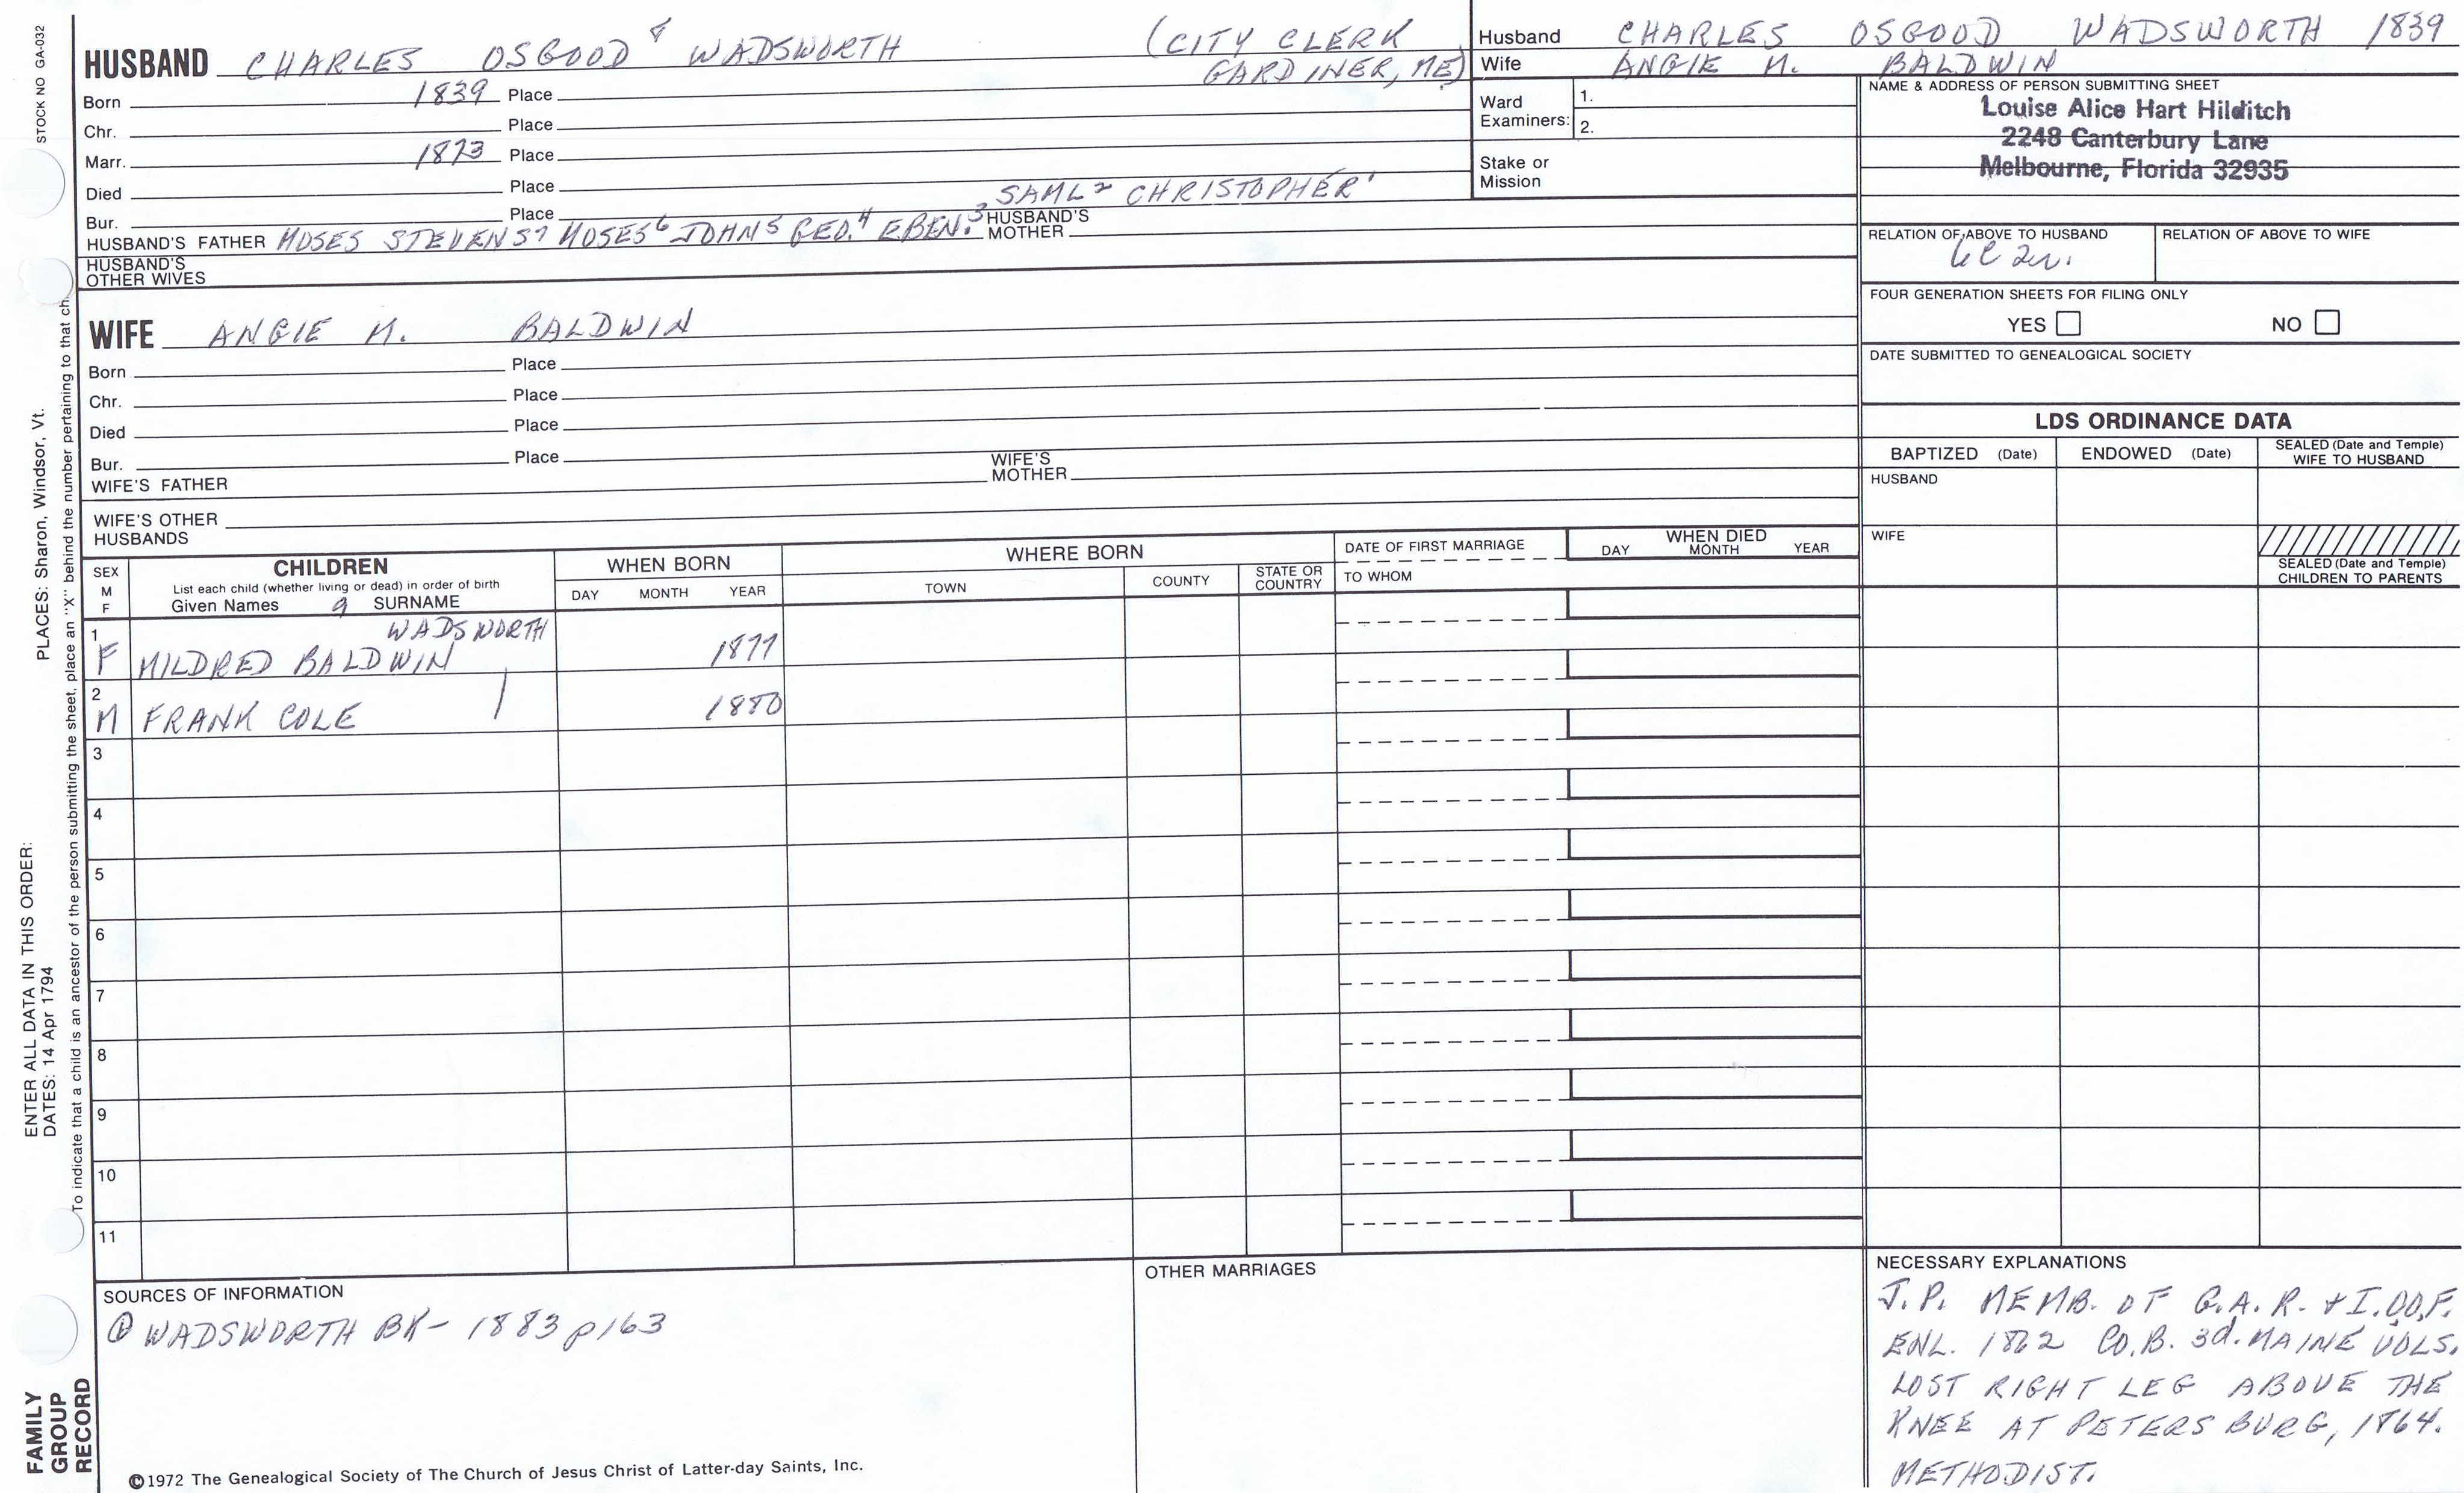 STOCK NO GA-032
HUSBAND CHARLES OSGOOD 8 WADSWORTH (CITY CLERK
GARDINER, ME)
Born 1839 Place
Chr. Place
Marr. 1873 Place
Died Place
Bur. Place
SAML 2 CHRISTOPHER 1
HUSBAND'S FATHER MOSES STEVENS 7 MOSES 6 JOHN 5 GEO. 4 EBEN. 3 HUSBAND'S MOTHER
HUSBAND'S OTHER WIVES
WIFE ANGIE M. BALDWIN
Born Place
Chr. Place
Died Place
Bur. Place
WIFE'S FATHER WIFE'S MOTHER
WIFE'S OTHER HUSBANDS
Husband CHARLES OSGOOD WADSWORTH 1839
Wife ANGIE M. BALDWIN
Ward Examiners: 1.
2.
Stake or Mission
NAME & ADDRESS OF PERSON SUBMITTING SHEET
Louise Alice Hart Hilditch
2248 Canterbury Lane
Melbourne, Florida 32935
RELATION OF ABOVE TO HUSBAND RELATION OF ABOVE TO WIFE
FOUR GENERATION SHEETS FOR FILING ONLY
YES NO
DATE SUBMITTED TO GENEALOGICAL SOCIETY
LDS ORDINANCE DATA
BAPTIZED (Date) ENDOWED (Date) SEALED (Date and Temple) WIFE TO HUSBAND
HUSBAND
WIFE
SEALED (Date and Temple) CHILDREN TO PARENTS
SEX M F
CHILDREN
List each child (whether living or dead) in order of birth
Given Names 9 SURNAME
WHEN BORN
DAY MONTH YEAR
WHERE BORN
TOWN COUNTY STATE OR COUNTRY
DATE OF FIRST MARRIAGE
TO WHOM
WHEN DIED
DAY MONTH YEAR
1 WADSWORTH
F MILDRED BALDWIN 1877
2
M FRANK COLE 1880
3
4
5
6
7
8
9
10
11
SOURCES OF INFORMATION
① WADSWORTH BK- 1883 p163
OTHER MARRIAGES
NECESSARY EXPLANATIONS
J.P. MEMB. OF G.A.R. + I.O.O.F.
ENL. 1862 CO.B. 3d. MAINE VOLS.
LOST RIGHT LEG ABOVE THE
KNEE AT PETERSBURG, 1864.
METHODIST.
©1972 The Genealogical Society of The Church of Jesus Christ of Latter-day Saints, Inc.
FAMILY
GROUP
RECORD
ENTER ALL DATA IN THIS ORDER:
DATES: 14 Apr 1794
PLACES: Sharon, Windsor, Vt.
To indicate that a child is an ancestor of the person submitting the sheet, place an "X" behind the number pertaining to that ch